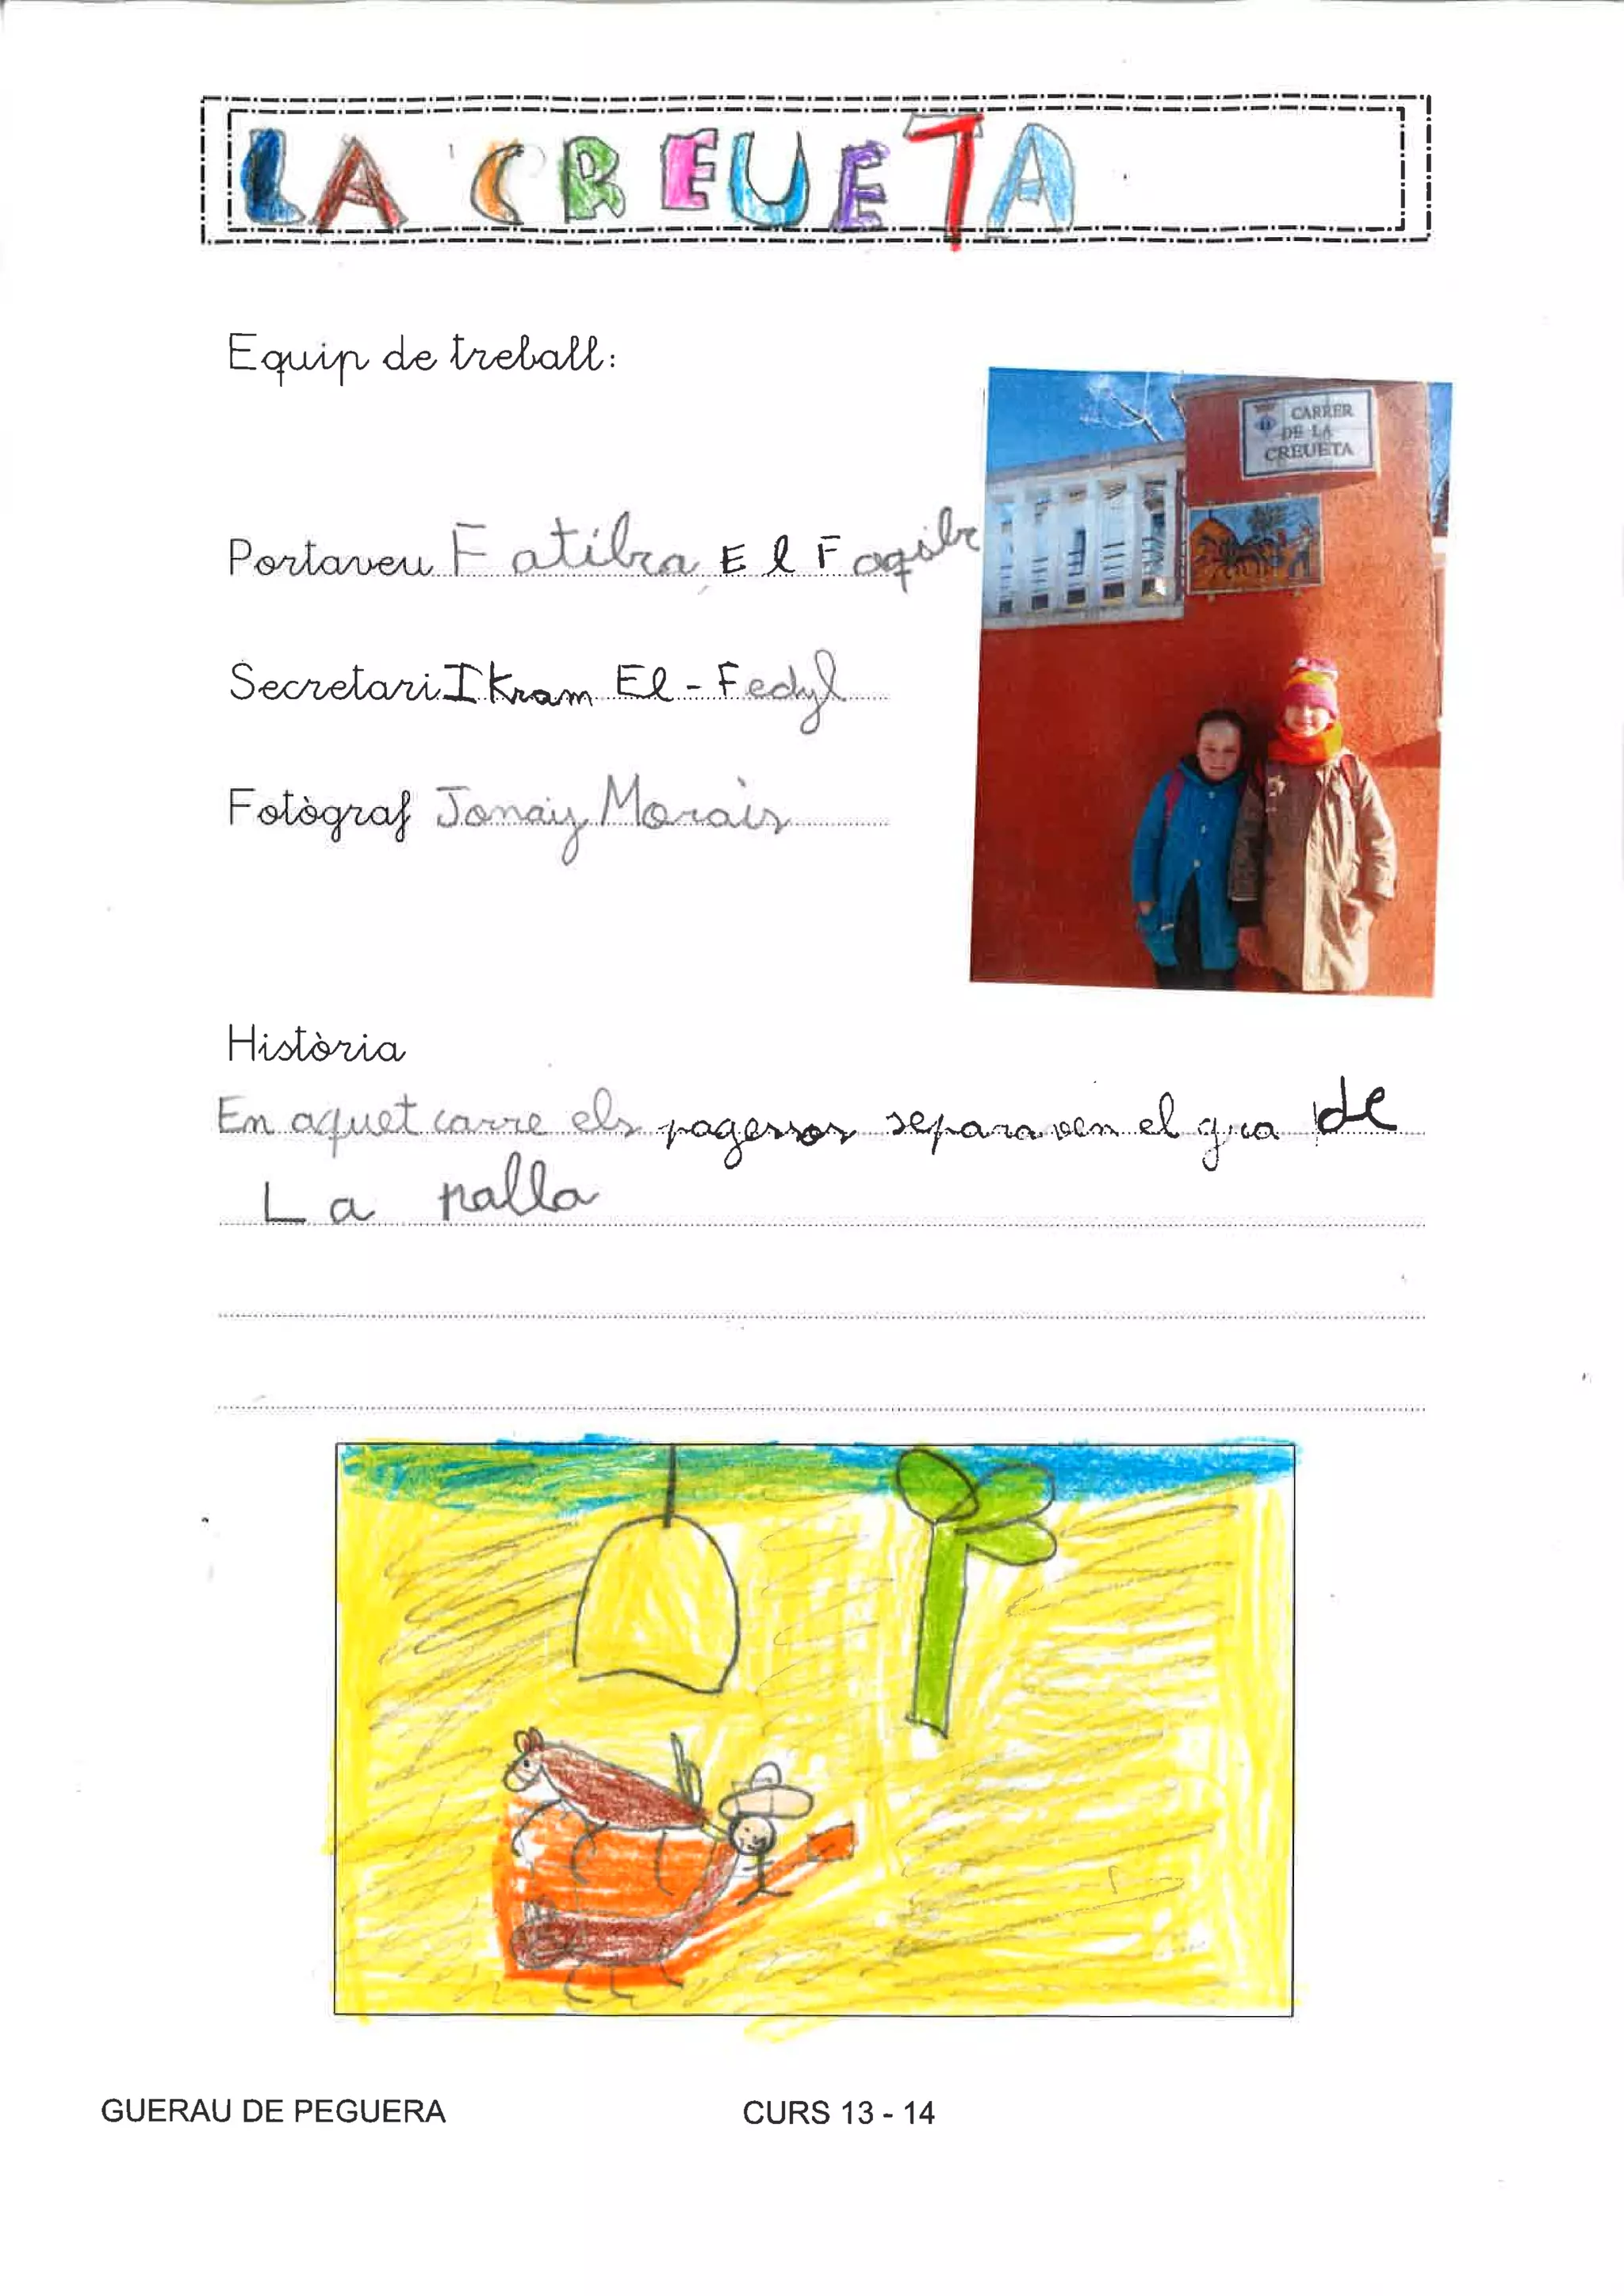 LA CREUETA
Equip de treball:
CARRER
DE LA
CREUETA
Portaveu Fatiha El Faqihi
Secretari Ikram El-Fedyl
Fotògraf Jonay Morais
Història
En aquet carre els pagessos separaven el gra de
La palla
GUERAU DE PEGUERA CURS 13 - 14